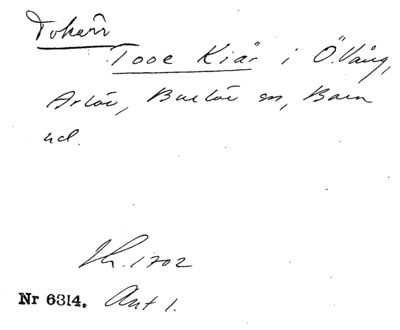 Tokärr
Tooe Kiär i Ö. Vång,
Arlöv, Burlöv sn, Bara
hd.
Lh. 1702
Nr 6314. Ant 1.